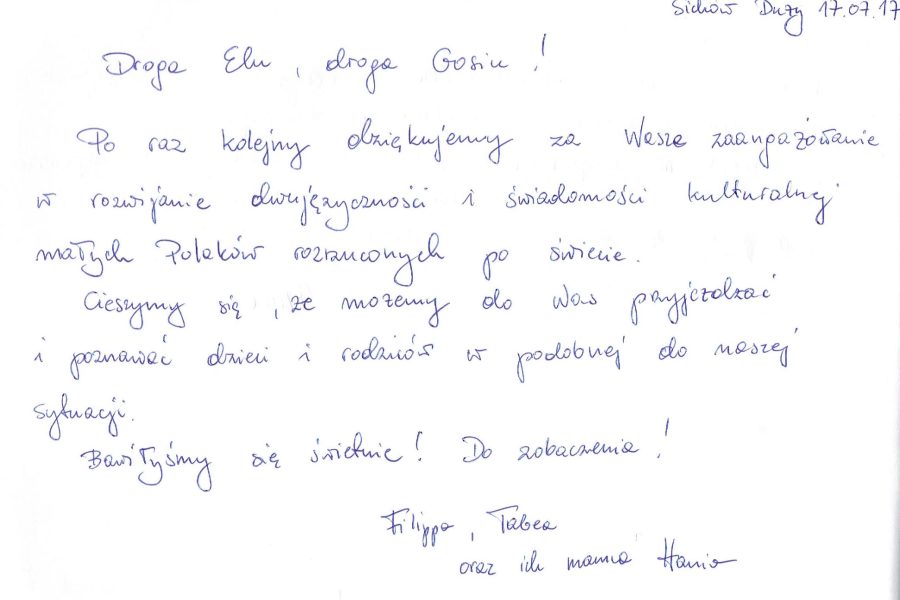 Sichów Duży 17.07.17
Droga Elu, droga Gosiu!
Po raz kolejny dziękujemy za Wasze zaangażowanie
w rozwijanie dwujęzyczności i świadomości kulturalnej
małych Polaków rozrzuconych po świecie.
Cieszymy się, że możemy do Was przyjeżdżać
i poznawać dzieci i rodziców w podobnej do naszej
sytuacji.
Bawiłyśmy się świetnie! Do zobaczenia!
Filippa, Tabea
oraz ich mama Hania